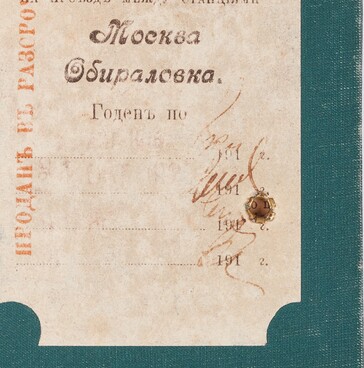 на проѣздъ между станціями
Москва
Обираловка.
Годенъ по
191 г.
191 г.
191 г.
191 г.
ПРОДАНЪ ВЪ РАЗСРО